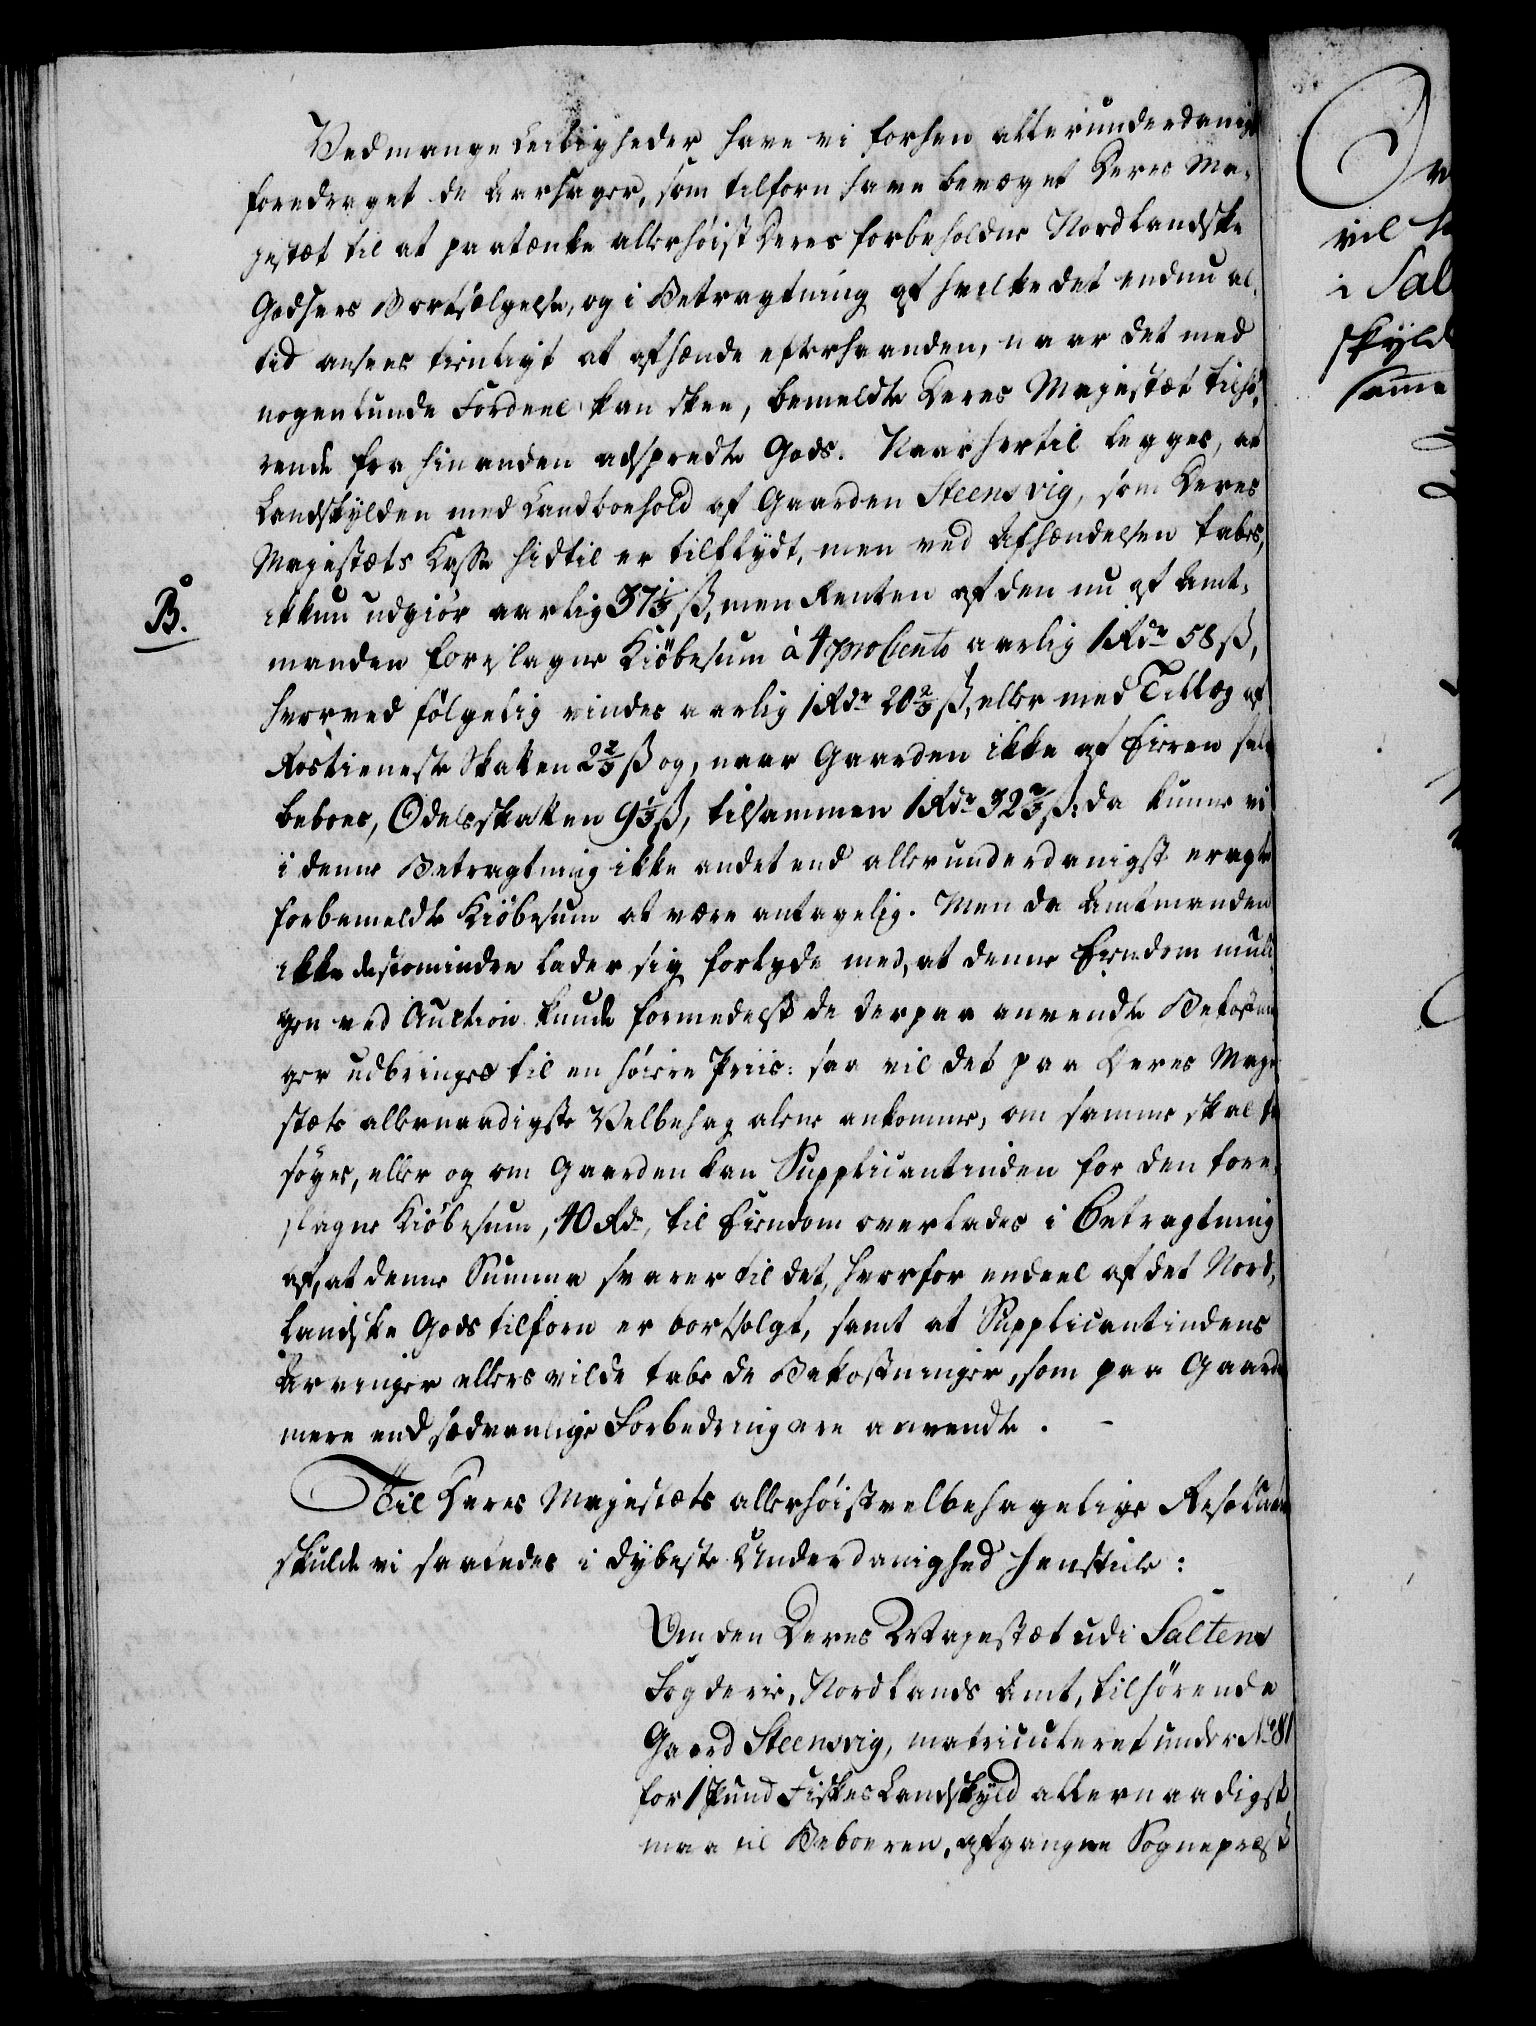 Ved mange Leiligheder have vi forhen allerunderdanigst
foredraget de Aarsager, som tilforn have bevæget Deres Ma-
jestæt til at paatænke allerhøist Deres forbeholdne Nordlandske
Godses Bortsælgelse, og i Betragtning af hvilke det endnu al-
tid ansees tienligt at afhænde efterhaanden, naar det med
nogenlunde Fordeel kan skee, bemeldte Deres Majestæt tilhø-
rende fra hinanden adspredte Gods. Naar hertil legges, at
Landskylden med Landboehold af Gaarden Steensvig, som Deres
Majestæts Kasse hidtil er tilflydt, men ved Afhændelsen tabes,
B.
ikkun udgiør aarlig 37 1/3 ß, men Renten af den nu af Amt-
manden foreslagne Kiöbesum à 4 pro Cento aarlig 1 Rdr 58 ß,
hvorved følgelig vindes aarlig 1 Rdr 20 2/3 ß, eller med Tillæg af
Rostieneste Skatten 2 2/3 ß og, naar Gaarden ikke af Eieren selv
beboes, Odelsskatten 9 1/3 ß, tilsammen 1 Rdr 32 2/3 ß: da kunne vi
i denne Betragtning ikke andet end allerunderdanigst eragte
forbemeldte Kiöbesum at være antagelig. Men da Amtmanden
ikke destomindre lader sig forlyde med, at denne Eiendom muli-
gen ved Auction kunde formedelst de derpaa anvendte Bekostnin-
ger udbringes til en høiere Priis: saa vil det paa Deres Maje-
stæts allernaadigste Velbehag alene ankomme, om samme skal for-
søges, eller og om Gaarden kan Supplicantinden for den fore-
slagne Kiöbesum, 40 Rdr, til Eiendom overlades i Betragtning
af, at denne Summa svarer til det, hvorfor endeel af det Nord-
landske Gods tilforn er bortsolgt, samt at Supplicantindens
Arvinger ellers vilde tabe de Bekostninger, som paa Gaarde
mere end sædvanlige Forbedring ere anvendte. –
Til Deres Majestæts allerhøistvelbehagelige Resolution
skulde vi saaledes i dybeste Underdanighed henstille:
Om den Deres Majestæt udi Saltens
Fogderie, Nordlands Amt, tilhørende
Gaard Steensvig, matriculeret under No 281
for 1 Pund Fiskes Landskyld allernaadigst
maa til Beboeren, afgangne Sognepræst
vil
i Sal
skyld
samme